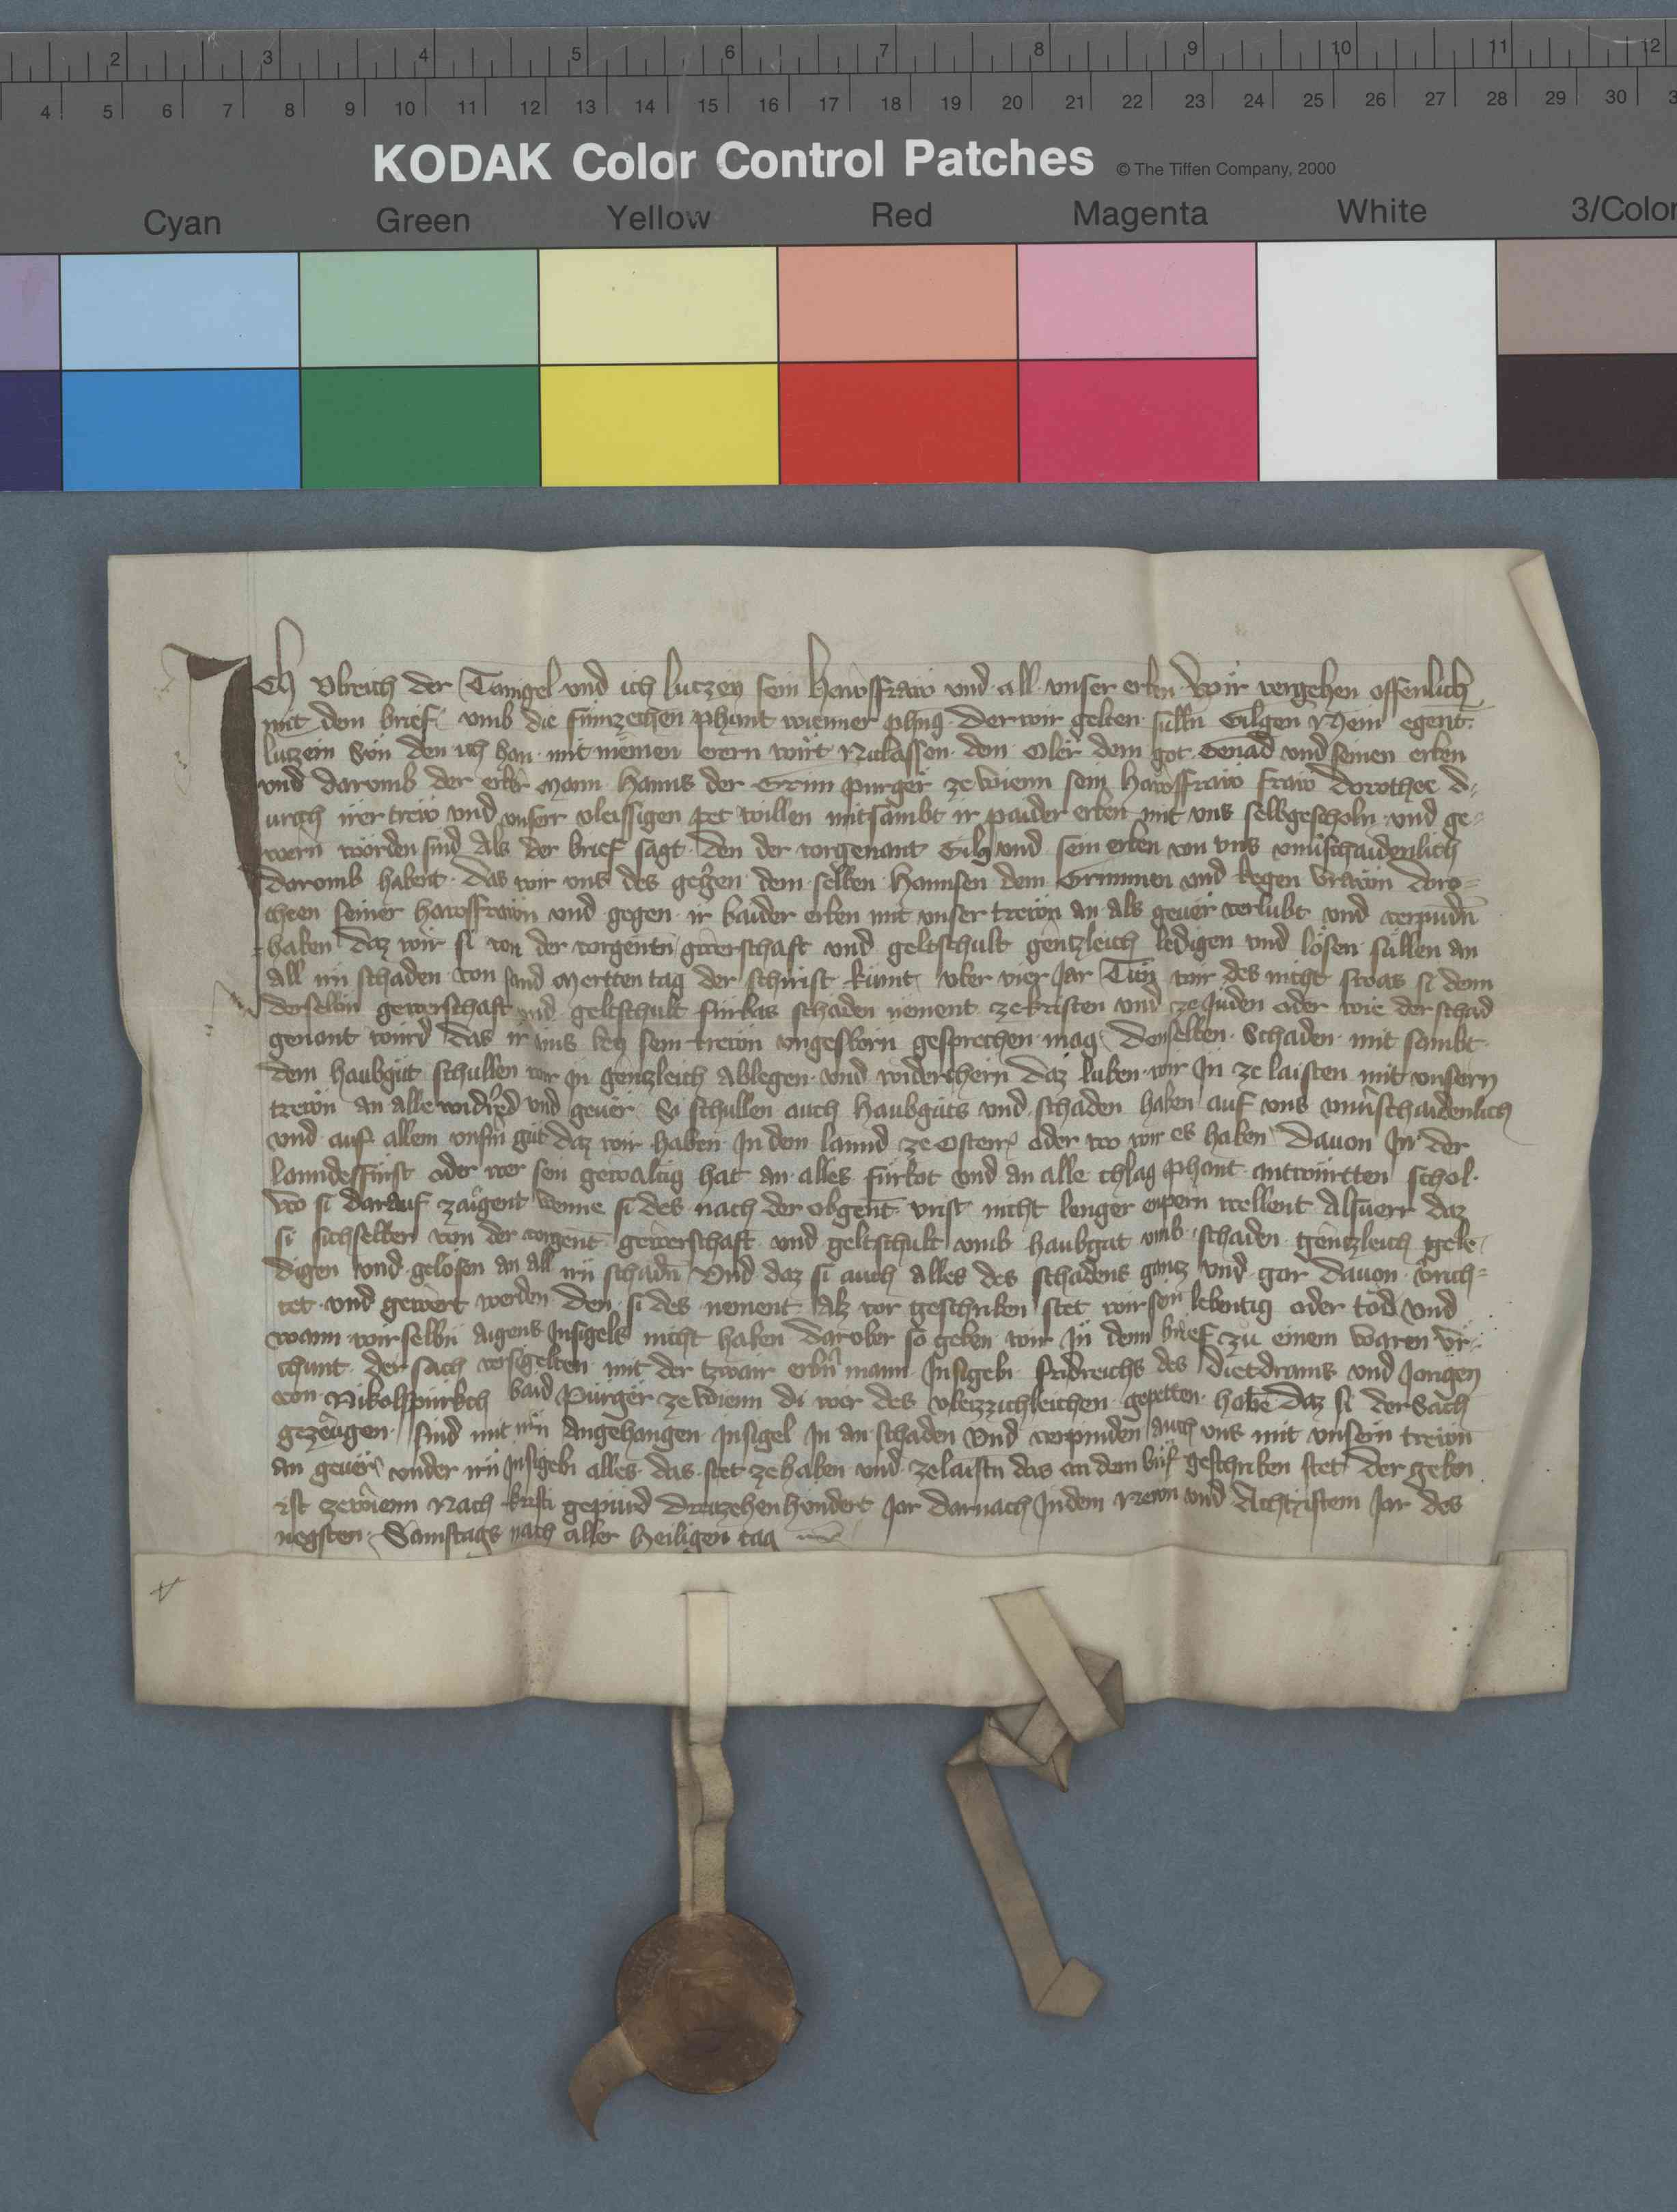 2 3 4 5 6 7 8 9 10 11 12
4 5 6 7 8 9 10 11 12 13 14 15 16 17 18 19 20 21 22 23 24 25 26 27 28 29 30 3
KODAK Color Control Patches © The Tiffen Company, 2000
Cyan Green Yellow Red Magenta White 3/Color
Ich Ulreich der Tanigel und ich luczey sein hawsffraw und all unser erben Wir vergehen offenlich
mit dem brief umb die fümzehen phunt wienner phng der wir gelten sülln Gilgen Mein egent
luczein Sün den ich han mit meinen erern wirt Niclassen dem Oler dem got Genad und seinen erben
und daromb der erbr Mann Hanns der Grim purger ze Wienn sein hawsffraw fraw Dorothee d
urch irer trew und unserr vleissigen pet willen mitsambt ir paider erben mit uns selbgescholn und ge
wern worden sind Als der brief sagt den der vorgenant Gilg und sein erben von uns unuschaidenlich
daromb habent das wir uns des gegen dem selben Hannsen dem Grimmen und kegen vrawn doro
theen seiner hawsffrawn und gegen ir baider erben mit unser trewn an als geuer verlubt und verpundn
haben daz wir si von der vorgentn gwerschaft und geltschult gentzleich ledigen und lösen süllen an
all irn schaden von sand Mertten tag der schirist kumt uber vier Jar Tün wir des nicht swas si dem
derselbn gewerschaft und geltschult fürbas schaden nement ze kristen und ze Juden oder wie der schad
genant wird das ir ains bey sein trewn ungesworn gesprechen mag denselben Schaden mit sambt
dem haubgut schullen wir In gentzleich ablegen und widerchern daz luben wir In ze laisten mit unsern
trewn an alle widred und geuer So schullen auch haubguts und schaden haben auf uns unuschaidenlich
und auf allem unsrm gut daz wir haben In dem lannd ze Osterr oder wo wir es haben Dauon In der
lanndesfürst oder wer sein gewaltig hat an alles fürbot und an alle chlag phant antwürtten schol
Wo si darauf zaigent wenne si des nach der obgent vrist nicht lenger enpern wellent Alsuerr daz
si sichselber von der vorgent gewerschaft und geltschult umb haubgut umb schaden gentzleich gele
digen und gelösen an all irn schadn Und daz si auch alles des schadens gantz und gar dauon vrich
tet und gewert werden den si des nement Alz vor geschriben stet wir sein lebentig oder tod und
wann wir selbn Aigens Insigels nicht haben darober so geben wir In den brief zu einem Waren vr
chunt der sach versigelten mit der tzwair erbn mann Insigeln Fridreichs des Dietdrams und Jorigen
von Nikolspurkch baid Purger ze Wienn di wir des vleizzichleichen gepetten habe daz si der Sach
gezeugen sind mit irn Angehangen Insigel In an schaden Und verpinden auch uns mit unsern trewn
an geuer under irn Insigeln alles das stet ze haben und ze laistn das an dem brif geschriben stet Der geben
ist ze Wienn Nach kristi gepurd drewzehen hundert Jar darnach In dem Newn und Achtzistem Jar des
negsten Samstags nach aller heiligen tag